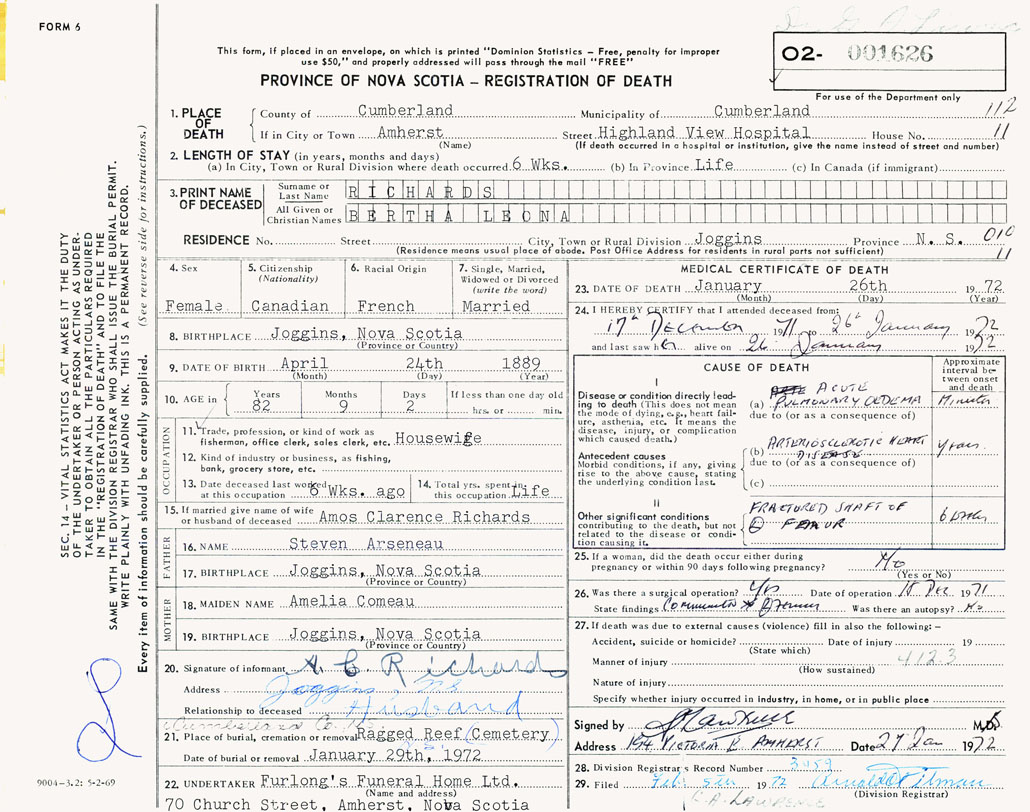 FORM 6
This form, if placed in an envelope, on which is printed "Dominion Statistics – Free, penalty for improper
use $50," and properly addressed will pass through the mail "FREE"
PROVINCE OF NOVA SCOTIA – REGISTRATION OF DEATH
02- 001626
For use of the Department only
SEC. 14 – VITAL STATISTICS ACT MAKES IT THE DUTY
OF THE UNDERTAKER OR PERSON ACTING AS UNDER-
TAKER TO OBTAIN ALL THE PARTICULARS REQUIRED
IN THE "REGISTRATION OF DEATH" AND TO FILE THE
SAME WITH THE DIVISION REGISTRAR WHO SHALL ISSUE THE BURIAL PERMIT.
WRITE PLAINLY WITH UNFADING INK. THIS IS A PERMANENT RECORD.
Every item of information should be carefully supplied. (See reverse side for instructions.)
1. PLACE OF DEATH
County of Cumberland Municipality of Cumberland 112
If in City or Town Amherst Street Highland View Hospital House No. 11
(Name) (If death occurred in a hospital or institution, give the name instead of street and number)
2. LENGTH OF STAY (in years, months and days)
(a) In City, Town or Rural Division where death occurred 6 Wks. (b) In Province Life (c) In Canada (if immigrant)
3. PRINT NAME OF DECEASED
Surname or Last Name RICHARDS
All Given or Christian Names BERTHA LEONA
RESIDENCE No. Street City, Town or Rural Division Joggins Province N. S. 010
(Residence means usual place of abode. Post Office Address for residents in rural parts not sufficient) 11
4. Sex
Female
5. Citizenship
(Nationality)
Canadian
6. Racial Origin
French
7. Single, Married,
Widowed or Divorced
(write the word)
Married
8. BIRTHPLACE Joggins, Nova Scotia
(Province or Country)
9. DATE OF BIRTH April 24th 1889
(Month) (Day) (Year)
10. AGE in Years Months Days If less than one day old
82 9 2 hrs. or min.
OCCUPATION
11. Trade, profession, or kind of work as
fisherman, office clerk, sales clerk, etc. Housewife
12. Kind of industry or business, as fishing,
bank, grocery store, etc.
13. Date deceased last worked
at this occupation 6 Wks. ago
14. Total yrs. spent
this occupation Life
15. If married give name of wife
or husband of deceased Amos Clarence Richards
FATHER
16. NAME Steven Arseneau
17. BIRTHPLACE Joggins, Nova Scotia
(Province or Country)
MOTHER
18. MAIDEN NAME Amelia Comeau
19. BIRTHPLACE Joggins, Nova Scotia
(Province or Country)
20. Signature of informant A C Richards
Address Joggins NS
Relationship to deceased Husband
Cumberland Co.
21. Place of burial, cremation or removal Ragged Reef (Cemetery)
Date of burial or removal January 29th, 1972
22. UNDERTAKER Furlong's Funeral Home Ltd.
(Name and address)
70 Church Street, Amherst, Nova Scotia
9004-3.2: 5-2-69
MEDICAL CERTIFICATE OF DEATH
23. DATE OF DEATH January 26th 1972
(Month) (Day) (Year)
24. I HEREBY CERTIFY that I attended deceased from:
17th December 1971 to 26th January 1972
and last saw her alive on 26 January 1972
CAUSE OF DEATH
Approximate
interval be-
tween onset
and death
I
Disease or condition directly lead-
ing to death (This does not mean
the mode of dying, e.g., heart fail-
ure, asthenia, etc. It means the
disease, injury, or complication
which caused death.)
ACUTE
(a) PULMONARY OEDEMA Minutes
due to (or as a consequence of)
Antecedent causes
Morbid conditions, if any, giving
rise to the above cause, stating
the underlying condition last.
(b) ARTERIOSCLEROTIC HEART DISEASE years
due to (or as a consequence of)
(c)
II
Other significant conditions
contributing to the death, but not
related to the disease or condi-
tion causing it.
FRACTURED SHAFT OF
FEMUR 6 weeks
25. If a woman, did the death occur either during
pregnancy or within 90 days following pregnancy? No
(Yes or No)
26. Was there a surgical operation? Yes Date of operation 18 Dec 1971
State findings Comminuted # Femur Was there an autopsy? No
27. If death was due to external causes (violence) fill in also the following: –
Accident, suicide or homicide? Date of injury 19
(State which)
Manner of injury 412.3
(How sustained)
Nature of injury
Specify whether injury occurred in industry, in home, or in public place
Signed by M.D.
Address 194 VICTORIA E. AMHERST Date 27 Jan 1972
28. Division Registrar's Record Number 3059
29. Filed Feb. 5th 1972 Arnold Pitman
(Division Registrar)
C. A. LAWRENCE